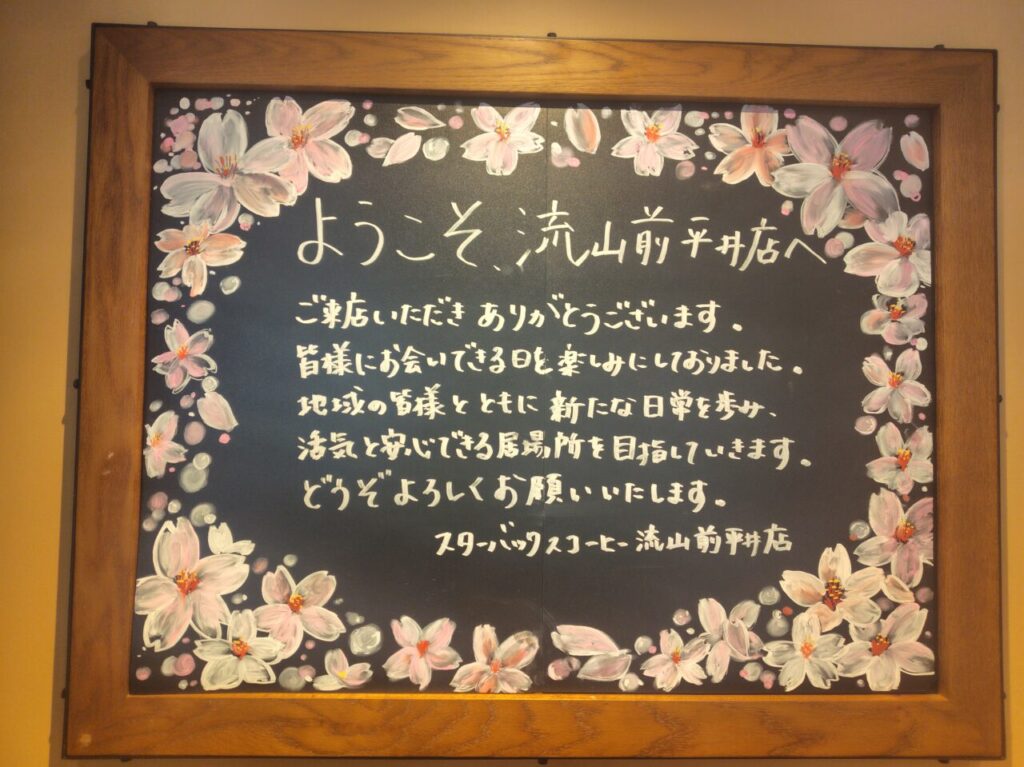 ようこそ、流山前平井店へ
ご来店いただき ありがとうございます。
皆様にお会いできる日を楽しみにしておりました。
地域の皆様とともに 新たな日常を歩み、
活気と安心できる居場所を目指していきます。
どうぞよろしくお願いいたします。
スターバックスコーヒー 流山前平井店